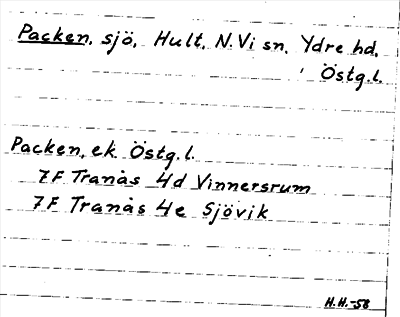 Packen, sjö, Hult, N. Vi sn, Ydre hd,
Östg.l.
Packen, ek. Östg.l.
7F Tranås 4d Vinnersrum
7F Tranås 4e Sjövik
H.H.-58